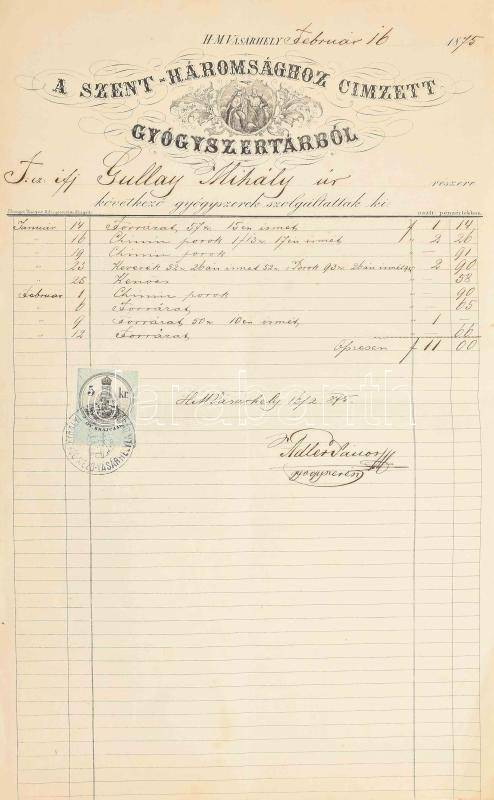 H-M.VÁSÁRHELY Február 16 1875
A SZENT-HÁROMSÁGHOZ CIMZETT
GYÓGYSZERTÁRBÓL
T. cz. ifj Gullay Mihály úr részére
következő gyógyszerek szolgáltattak ki
oszt. pengőértékben.
Január 14 Forrázat 57x 15en ismét f 1 14
" 16 Chinin porok 1f13x 17en ismét " 2 26
" 19 Chinin porok — 91
" 23 Keverék 52x 26án ismét 52x Porok 93x 26án ismét " 2 90
" 25 Kenőcs — 58
Február 1 Chinin porok — 90
" 6 Forrázat — 65
" 9 Forrázat 50x 10en ismét 1 —
" 12 Forrázat — 66
Öszesen f 11 00
5 kr.
HMVásárhely 16/2 875
Adler János
gyógyszerész
darabanth